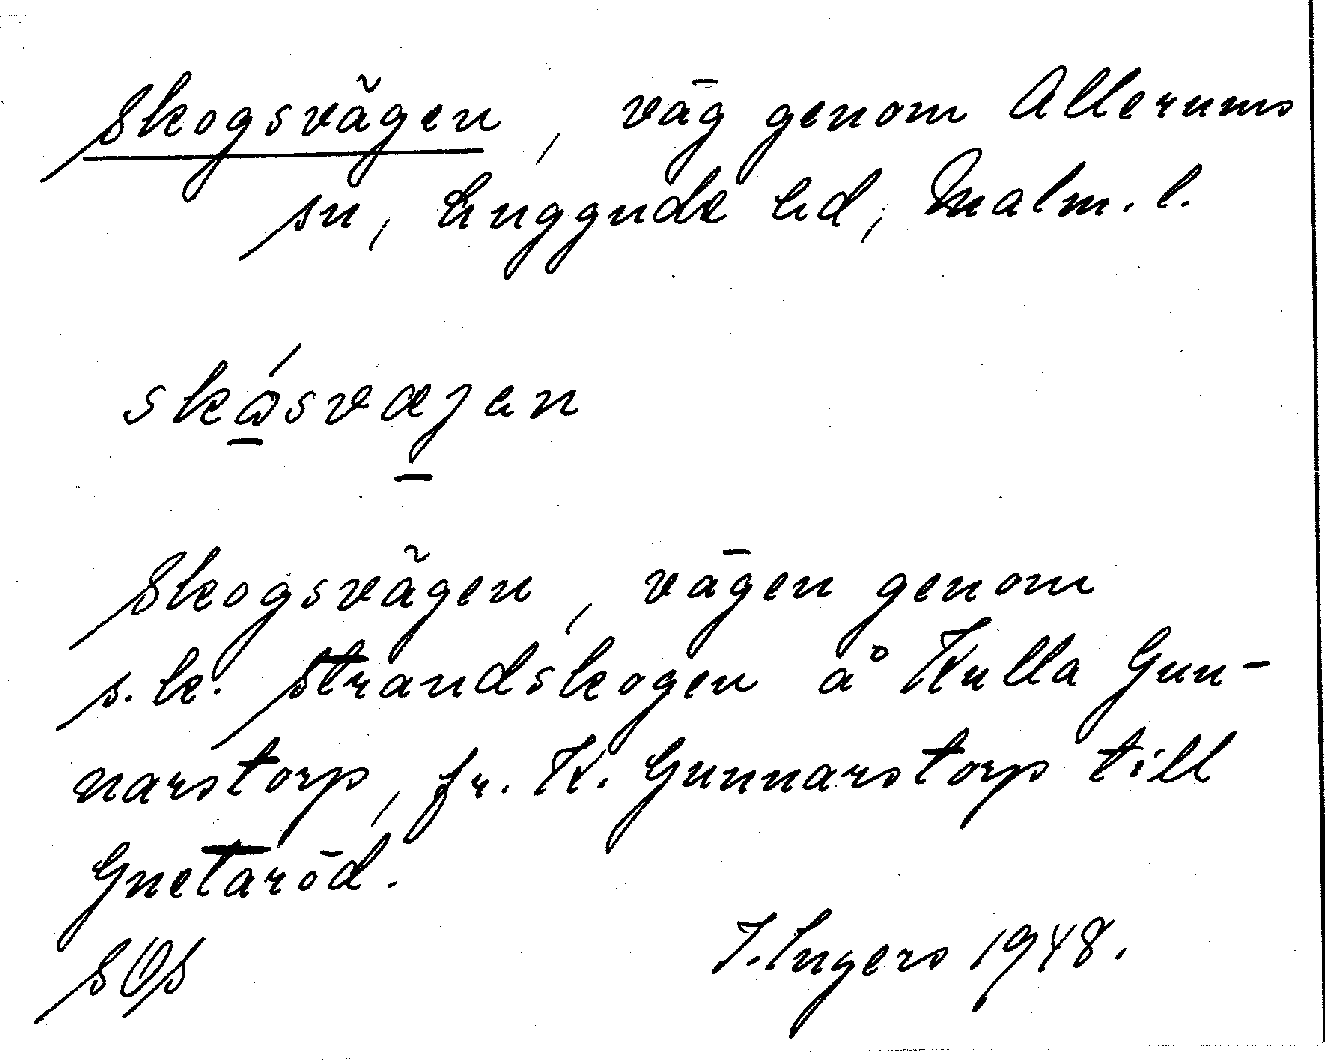 Skogsvägen, väg genom Allerums
sn, Luggude hd, Malm. l.
skåsvæjen
Skogsvägen, vägen genom
s.k. Strandskogen å Kulla Gun-
narstorp, fr. K. Gunnarstorp till
Gnetaröd.
SOS I. Ingers 1948.